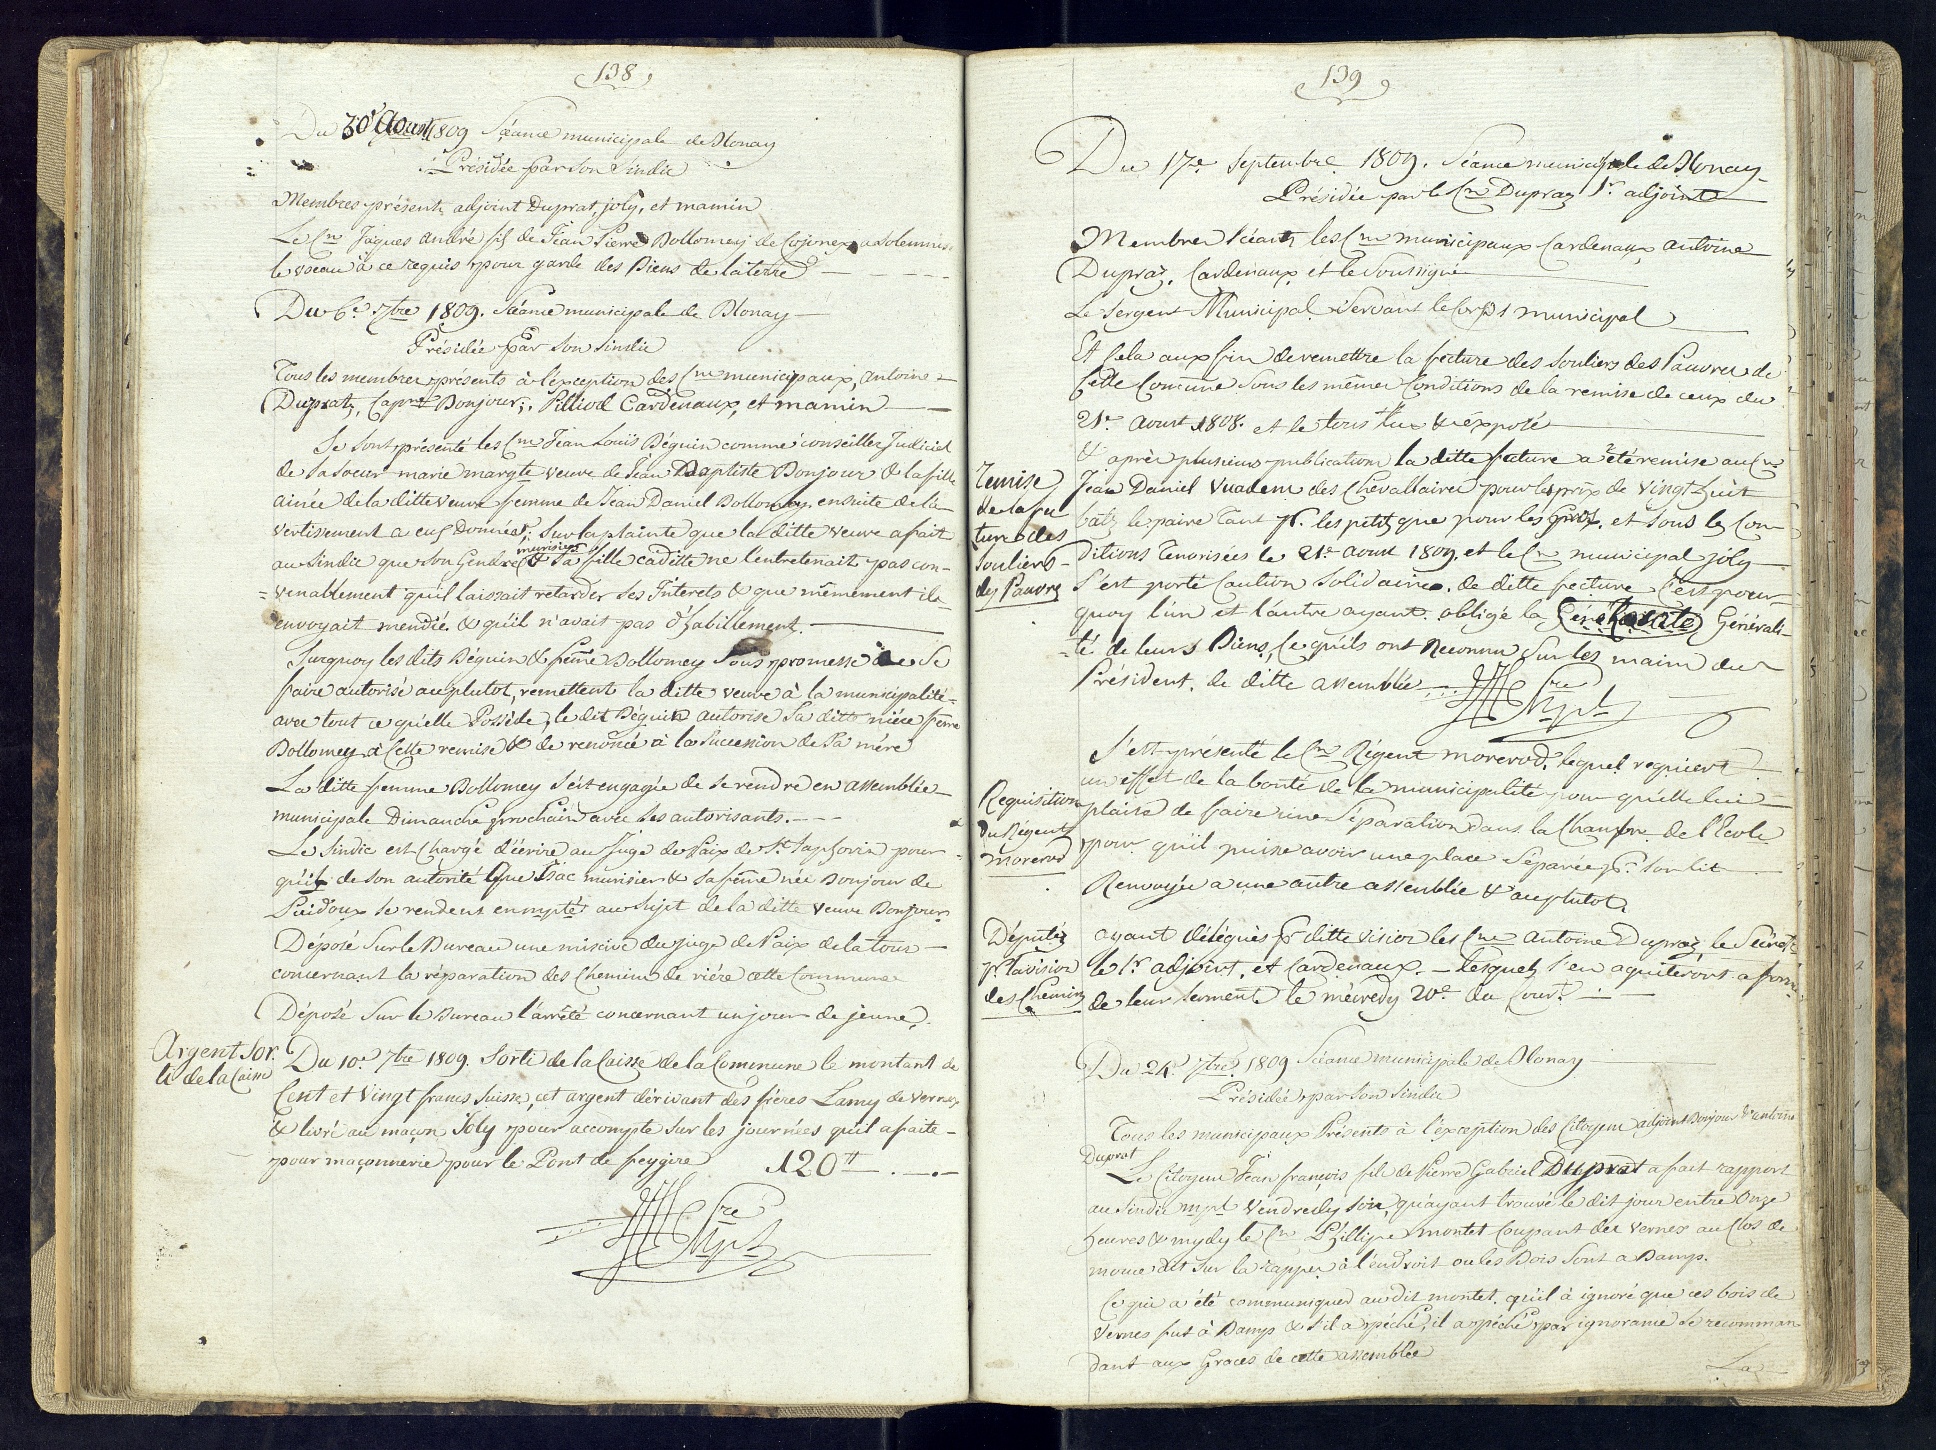 138
Du 30e Aoust 1809 Séance municipale de Blonay
Présidée par son Sindic
Membres présents adjoint Duprat, joly, et mamin
Le Cen Jaques andré fils de Jean Pierre Dollomey de Cojonex a solemnisé
le voeau à ce requis pour garde des Biens de la terre
Du 6e 7bre 1809. Séance municipale de Blonay
Présidée par son Sindic
Tous les membres présents à l'exception des Cens municipaux, antoine
Duprat, Capne Bonjour, Pilliod Cardenaux, et mamin
Se sont présenté les Cens Jean Louis Béguin comme conseiller Judiciel
de sa soeur marie margte veuve de Jean Baptiste Bonjour & la fille
ainée de la ditte veuve femme de Jean Daniel Dollomey ensuite de l'a-
vertissement a eux Donnéest, sur la plainte que la ditte veuve a fait
munisier
au sindic que son Gendre & sa fille cadette ne l'entretenait pas con-
=venablement qu'il laissait retarder ses Interets & que mêmement il
envoyait mendié & qu'il n'avait pas d'habillement.
Surquoy les dits Béguin & feme Dollomey sous promesse de se
faire autorisé au plutot, remettent la ditte veuve à la municipalité
avec tout ce qu'elle Possède, le dit Béguin autorise sa ditte niéce feme
Dollomey à Cette remise & de renoncé à la succession de sa mére
La ditte femme Dollomey s'est engagée de se rendre en assemblée
municipale Dimanche prochain avec ses autorisants.
Le Sindic est Chargé d'écrire au Juge de Paix de St Saphorin pour
qu'il de son autorité Que Isac munisier & sa feme née Bonjour de
Puidoux se rendent en mpté au sujet de la ditte veuve Bonjour
Déposé Sur le Bureau une missive du juge de Paix de la tour
concernant la réparation des Chemins de riére cette Commune
Déposé Sur le Bureau l'arrêté concernant un jour de jeune,
Argent sor.
ti de la Caisse
Du 10e 7bre 1809. Sorti de la Caisse de la Commune le montant de
Cent et Vingt francs Suisses, cet argent dérivant des fréres Lamy de Vernex
& livré au maçon Joly pour accompte sur les journées qu'il a faite
pour maçonnerie pour le Pont de feygire 120 tt
Sre
Mpl
139
Du 17e Septembre 1809. Séance municipale de Blonay
Présidée par le Cen Dupraz 1r adjoint
Membres séants les Cens municipaux Cardenaux antoine
Dupraz, Cardenaux et le Soussigné
Le Sergent Municipal servant le Corps municipal
Et Cela aux fin de remettre la fecture des souliers des Pauvres de
Cette Comune sous les mêmes Conditions de la remise de ceux du
21e aoust 1808. et le tous lu & éxposé
Remise
de la fec
ture des
Souliers
des Pauvres
& aprés plusieurs publications la ditte fecture a été remise au Cen
Jean Daniel Vuadens des Chevallaires pour le prix de vingt huit
batz le paire tant pr. les petitz que pour les gros, et sous les Con-
ditions Tenorisées le 21e aoust 1809 et le Cen municipal joly
s'est porté Caution Solidaire de ditte fecture C'est pour
quoy l'un et l'autre ayant obligé la Générali-
té de leurs Biens, Ce qu'ils ont Reconnu sur les mains du
Président de ditte assemblée
Sre
Mpl
Requisition
du Régent
morerod
S'est présenté le Cen Régent morerod, lequel requiert
un effet de la bonté de la municipalité pour qu'elle lui
plaise de faire une Séparation dans la Chambre de l'Ecole
pour qu'il puise avoir une place Séparée pr. son lit
Renvoyée a une autre assemblée & au plutot
Députéz
pr la vision
des Chemins
ayant délégués pr ditte vision les Cens antoine Dupraz le
le 1r adjoint, et Cardenaux. lesquels s'en aquiteront a forme
de leur serment le mécredy 20e du Cour.t
Du 24e 7bre 1809 Séance municipale de Blonay
Présidée par son Sindic
Tous les municipaux Présents à l'exception des Citoyens adjoint Bonjour & antoine
Duprat
Le Citoyen Jean françois fils de Pierre Gabriel Duprat a fait rapport
au Sindic mpl Vendredy soir, qu'ayant trouvé le dit jour entre Onze
heures & mydy le Cen Phillipe montet Coupant des Vernes au Clos de
mouce dit sur la rappes à l'endroit ou les Bois sont a Bamps.
Ce qui a été communiqué au dit montet. qu'il à ignoré que ces bois de
Vernes fut à Bamps & s'il a péché, il a péché par ignorance se recomman
dant aux Graces de cette assemblée
La